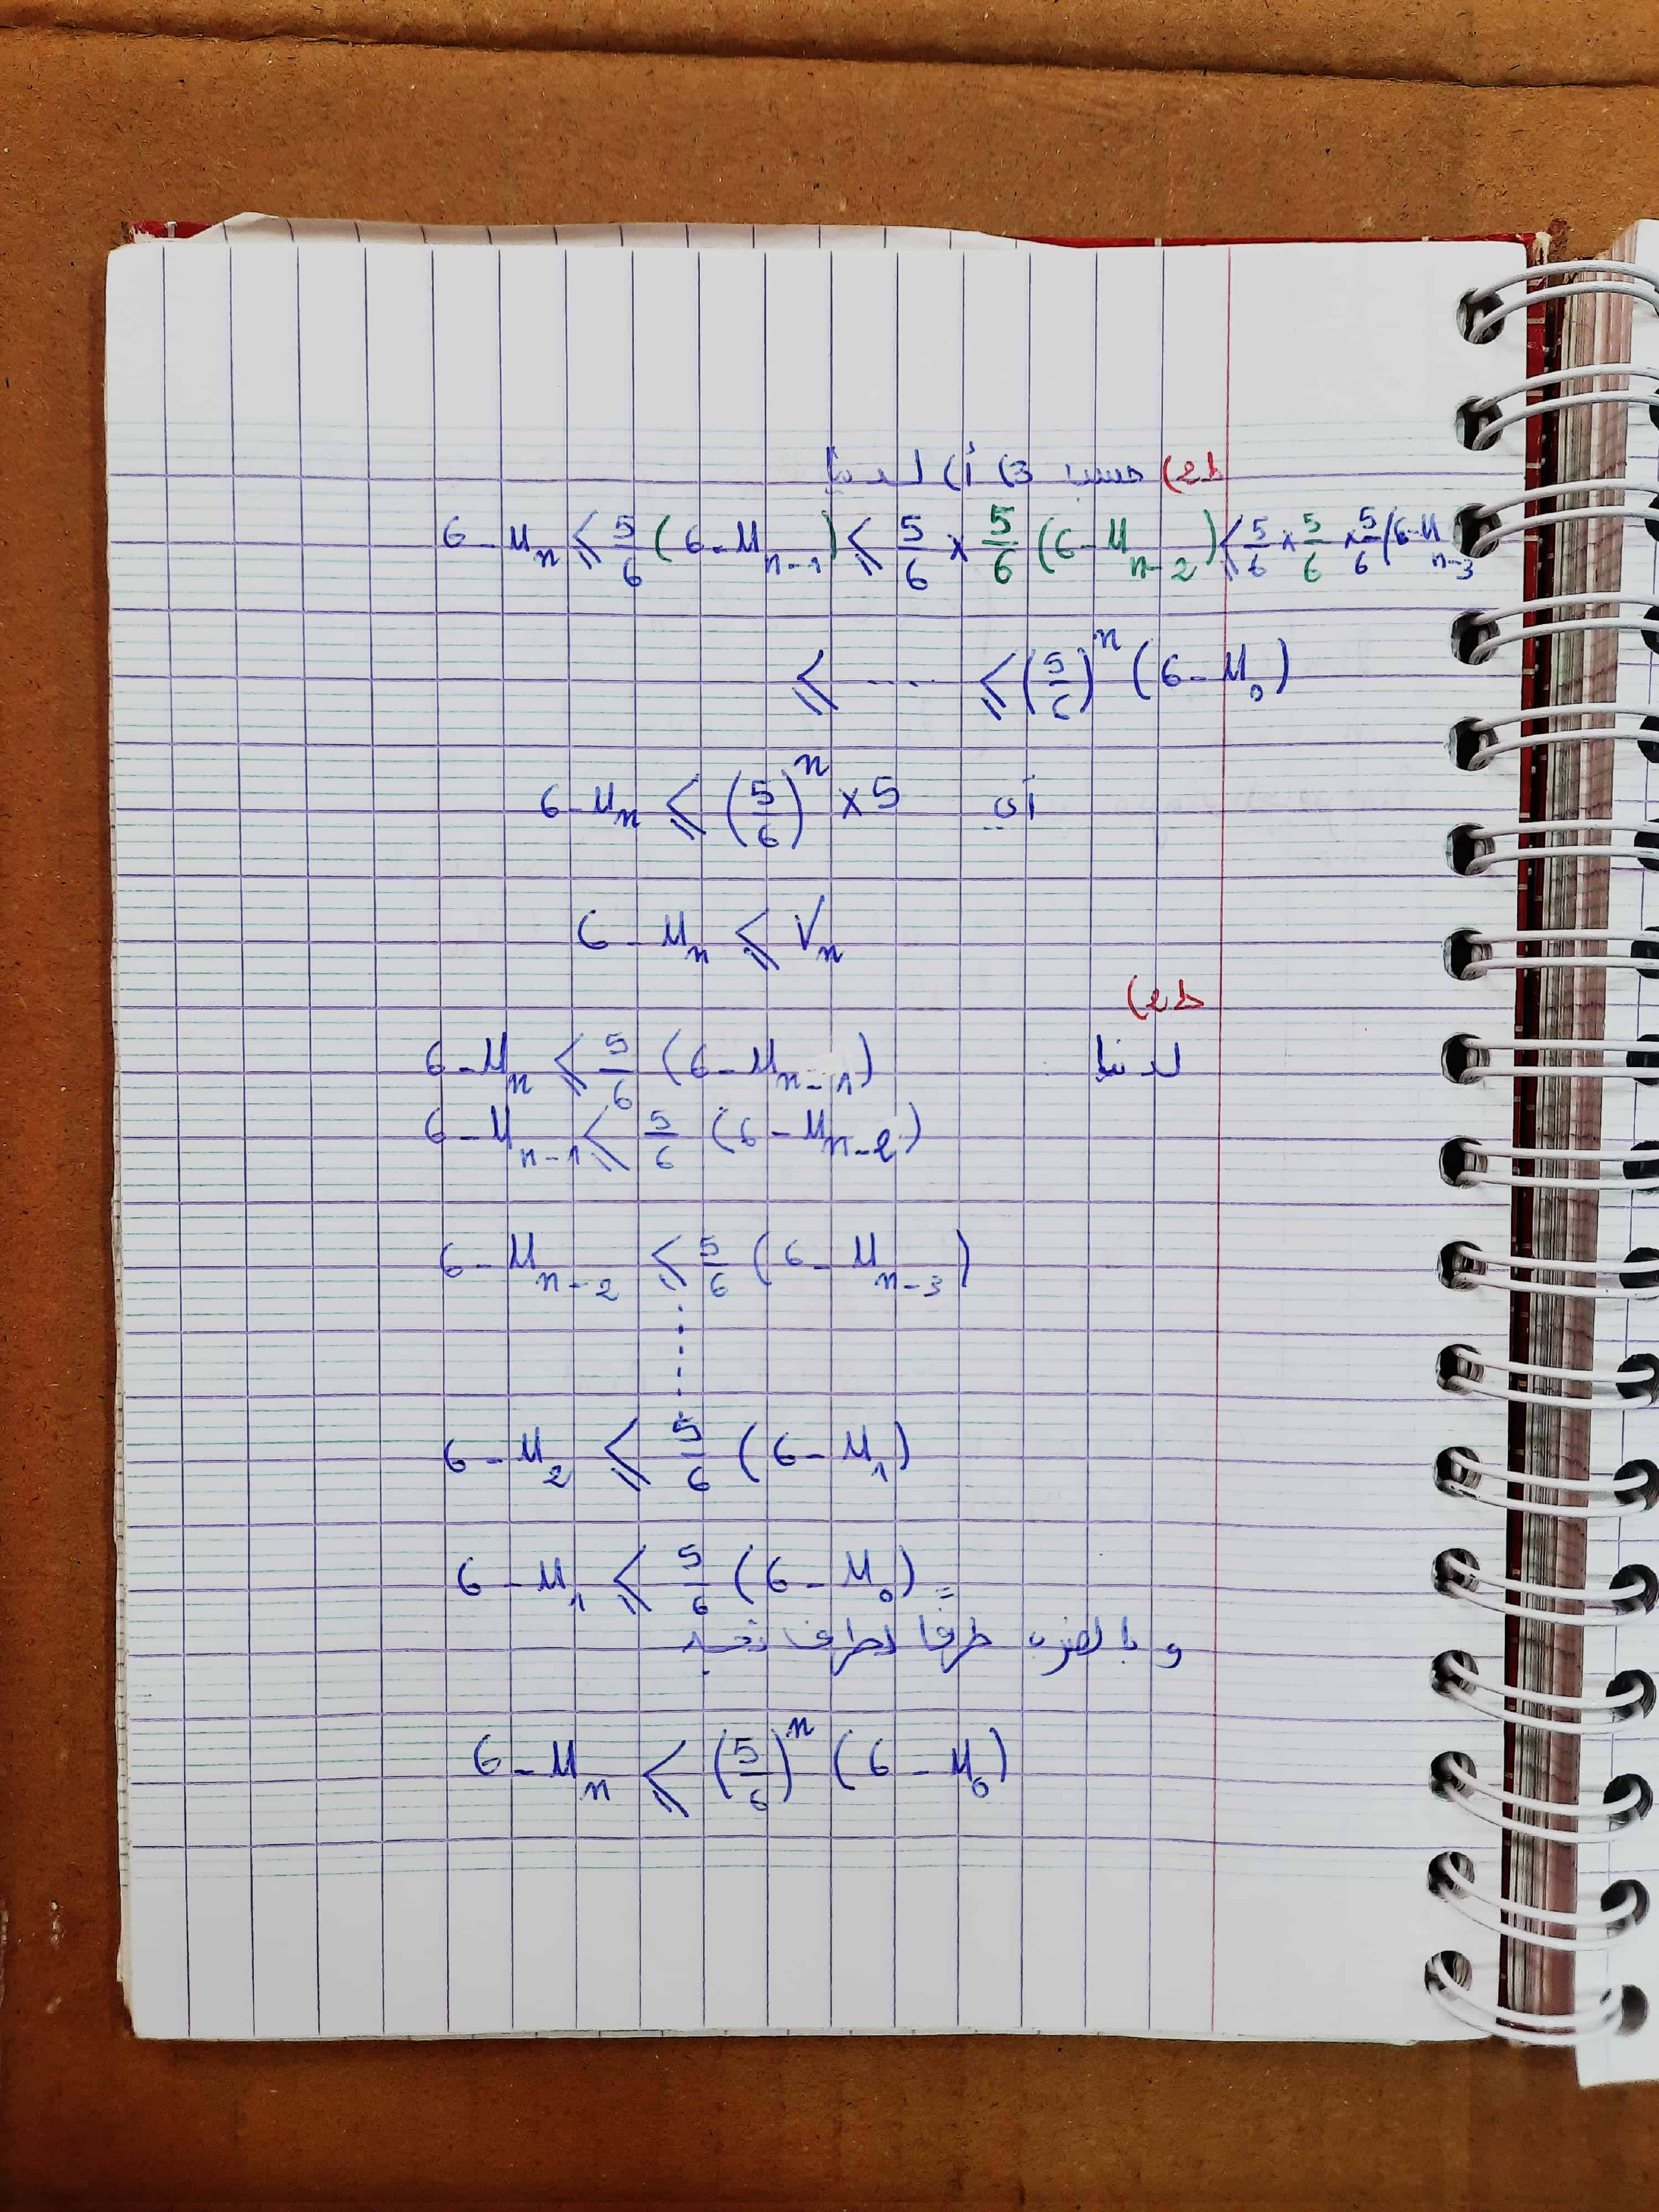 ط2) حسب 3) أ) لدينا
6 - u_n ⩽ 5/6 (6 - u_{n-1}) ⩽ 5/6 × 5/6 (6 - u_{n-2}) ⩽ 5/6 × 5/6 × 5/6 (6 - u_{n-3})
⩽ ..... ⩽ (5/6)^n (6 - u_0)
أي 6 - u_n ⩽ (5/6)^n × 5
6 - u_n ⩽ V_n
ط2)
لدينا 6 - u_n ⩽ 5/6 (6 - u_{n-1})
6 - u_{n-1} ⩽ 5/6 (6 - u_{n-2})
6 - u_{n-2} ⩽ 5/6 (6 - u_{n-3})
⋮
6 - u_2 ⩽ 5/6 (6 - u_1)
6 - u_1 ⩽ 5/6 (6 - u_0)
و بالضرب طرفًا لطرف نجد
6 - u_n ⩽ (5/6)^n (6 - u_0)